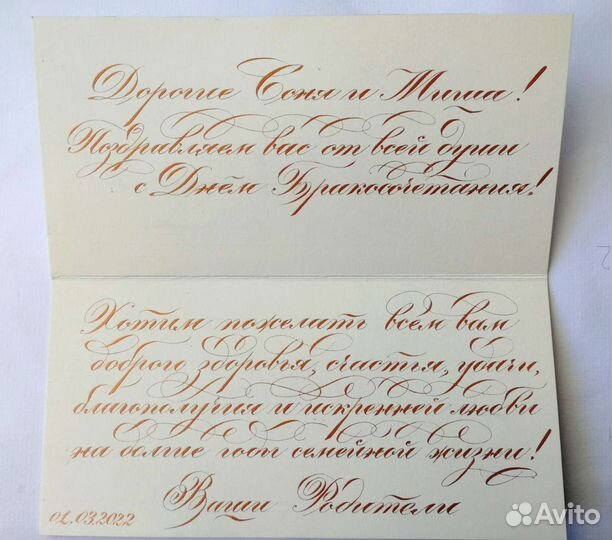 Дорогие Соня и Миша!
Поздравляем вас от всей души
с Днём Бракосочетания!
Хотим пожелать всем вам
доброго здоровья, счастья, удачи,
благополучия и искренней любви
на долгие годы семейной жизни!
Ваши Родители
01.03.2022
Avito